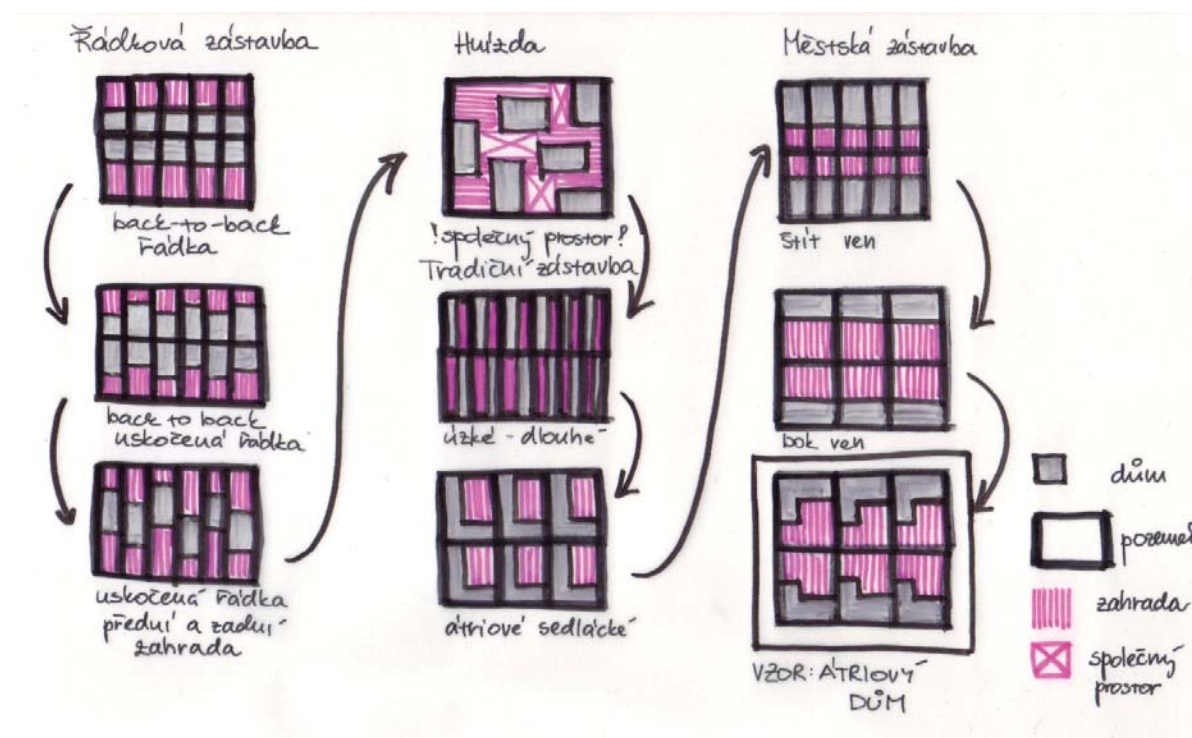 Řádková zástavba
back-to-back
řádka
back to back
uskočená řádka
uskočená řádka
přední a zadní
zahrada
Hnízda
!společný prostor!
Tradiční zástavba
úzké - dlouhé
átriové sedlácké
Městská zástavba
štít ven
bok ven
VZOR: ÁTRIOVÝ
DŮM
dům
pozemek
zahrada
společný
prostor